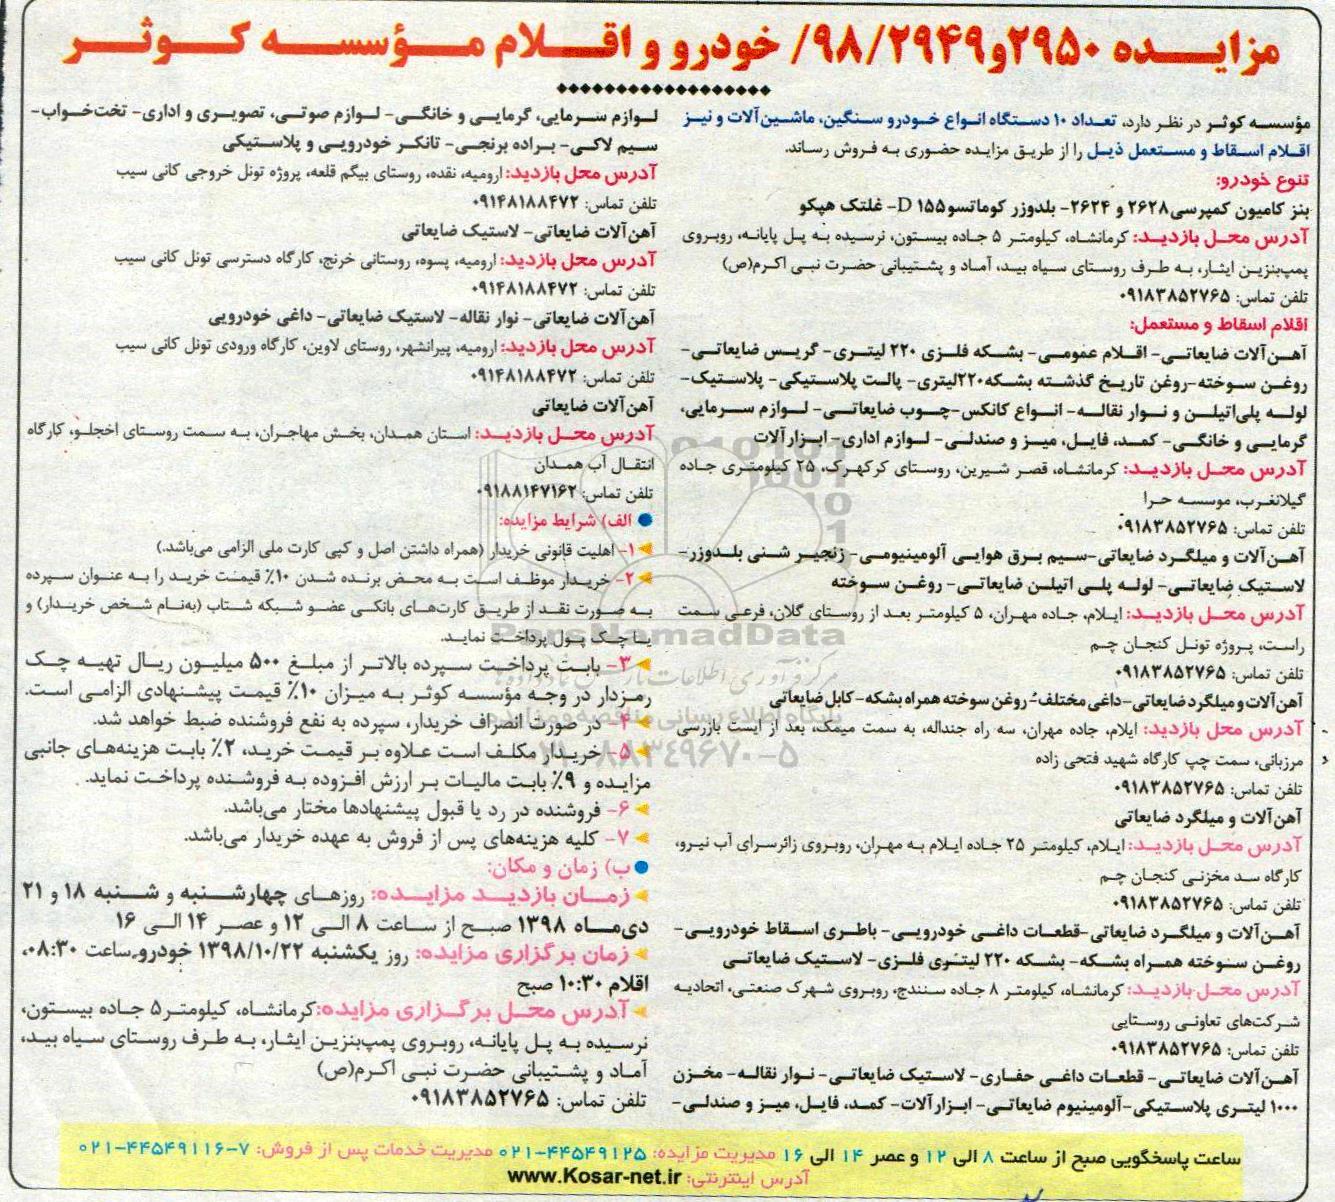 مزایـــده ۲۹۵۰و۹۸/۲۹۴۹/ خودرو و اقـــلام مـــؤسســه کـــوثـــر
مؤسسه کوثر در نظر دارد، تعداد ۱۰ دستگاه انواع خودرو سنگین، ماشین‌آلات و نیز
اقلام اسقاط و مستعمل ذیل را از طریق مزایده حضوری به فروش رساند.
تنوع خودرو:
بنز کامیون کمپرسی۲۶۲۸ و ۲۶۲۴- بلدوزر کوماتسو۱۵۵ D- غلتک هپکو
آدرس محل بازدید: کرمانشاه، کیلومتر ۵ جاده بیستون، نرسیده به پل پایانه، روبروی
پمپ‌بنزین ایثار، به طرف روستای سیاه بید، آماد و پشتیبانی حضرت نبی اکرم(ص)
تلفن تماس: ۰۹۱۸۳۸۵۲۷۶۵
اقلام اسقاط و مستعمل:
آهن‌آلات ضایعاتی- اقلام عمومی- بشکه فلزی ۲۲۰ لیتری- گریس ضایعاتی-
روغن سوخته-روغن تاریخ گذشته بشکه۲۲۰لیتری- پالت پلاستیکی- پلاستیک-
لوله پلی‌اتیلن و نوار نقاله- انواع کانکس-چوب ضایعاتی- لوازم سرمایی،
گرمایی و خانگی- کمد، فایل، میز و صندلی- لوازم اداری- ابزارآلات
آدرس محل بازدید: کرمانشاه، قصر شیرین، روستای کرکهرک، ۲۵ کیلومتری جاده
گیلانغرب، موسسه حرا
تلفن تماس: ۰۹۱۸۳۸۵۲۷۶۵
آهن‌آلات و میلگرد ضایعاتی-سیم برق هوایی آلومینیومی- زنجیر شنی بلدوزر-
لاستیک ضایعاتی- لوله پلی اتیلن ضایعاتی- روغن سوخته
آدرس محل بازدید: ایلام، جاده مهران، ۵ کیلومتر بعد از روستای گلان، فرعی سمت
راست، پروژه تونل کنجان چم
تلفن تماس: ۰۹۱۸۳۸۵۲۷۶۵
آهن‌آلات و میلگرد ضایعاتی-داغی مختلف- روغن سوخته همراه بشکه- کابل ضایعاتی
آدرس محل بازدید: ایلام، جاده مهران، سه راه جنداله، به سمت میمک، بعد از ایست بازرسی
مرزبانی، سمت چپ کارگاه شهید فتحی زاده
تلفن تماس: ۰۹۱۸۳۸۵۲۷۶۵
آهن‌آلات و میلگرد ضایعاتی
آدرس محل بازدید: ایلام، کیلومتر ۲۵ جاده ایلام به مهران، روبروی زائرسرای آب نیرو،
کارگاه سد مخزنی کنجان چم
تلفن تماس: ۰۹۱۸۳۸۵۲۷۶۵
آهن‌آلات و میلگرد ضایعاتی-قطعات داغی خودرویی- باطری اسقاط خودرویی-
روغن سوخته همراه بشکه- بشکه ۲۲۰ لیتری فلزی- لاستیک ضایعاتی
آدرس محل بازدید: کرمانشاه، کیلومتر ۸ جاده سنندج، روبروی شهرک صنعتی، اتحادیه
شرکت‌های تعاونی روستایی
تلفن تماس: ۰۹۱۸۳۸۵۲۷۶۵
آهن‌آلات ضایعاتی- قطعات داغی حفاری- لاستیک ضایعاتی- نوار نقاله- مخزن
۱۰۰۰ لیتری پلاستیکی-آلومینیوم ضایعاتی- ابزارآلات- کمد، فایل، میز و صندلی-
لوازم سرمایی، گرمایی و خانگی- لوازم صوتی، تصویری و اداری- تخت‌خواب-
سیم لاکی- براده برنجی- تانکر خودرویی و پلاستیکی
آدرس محل بازدید: ارومیه، نقده، روستای بیگم قلعه، پروژه تونل خروجی کانی سیب
تلفن تماس: ۰۹۱۴۸۱۸۸۴۷۲
آهن‌آلات ضایعاتی- لاستیک ضایعاتی
آدرس محل بازدید: ارومیه، پسوه، روستانی خرنج، کارگاه دسترسی تونل کانی سیب
تلفن تماس: ۰۹۱۴۸۱۸۸۴۷۲
آهن‌آلات ضایعاتی- نوار نقاله- لاستیک ضایعاتی- داغی خودرویی
آدرس محل بازدید: ارومیه، پیرانشهر، روستای لاوین، کارگاه ورودی تونل کانی سیب
تلفن تماس: ۰۹۱۴۸۱۸۸۴۷۲
آهن‌آلات ضایعاتی
آدرس محل بازدید: استان همدان، بخش مهاجران، به سمت روستای اخجلو، کارگاه
انتقال آب همدان
تلفن تماس: ۰۹۱۸۸۱۴۷۱۶۲
الف) شرایط مزایده:
۱- اهلیت قانونی خریدار (همراه داشتن اصل و کپی کارت ملی الزامی می‌باشد.)
۲- خریدار موظف است به محض برنده شدن ۱۰٪ قیمت خرید را به عنوان سپرده
به صورت نقد از طریق کارت‌های بانکی عضو شبکه شتاب (به‌نام شخص خریدار) و
یا چک پول پرداخت نماید.
۳- بابت پرداخت سپرده بالاتر از مبلغ ۵۰۰ میلیون ریال تهیه چک
رمزدار در وجه مؤسسه کوثر به میزان ۱۰٪ قیمت پیشنهادی الزامی است.
۴- در صورت انصراف خریدار، سپرده به نفع فروشنده ضبط خواهد شد.
۵- خریدار مکلف است علاوه بر قیمت خرید، ۲٪ بابت هزینه‌های جانبی
مزایده و ۹٪ بابت مالیات بر ارزش افزوده به فروشنده پرداخت نماید.
۶- فروشنده در رد یا قبول پیشنهادها مختار می‌باشد.
۷- کلیه هزینه‌های پس از فروش به عهده خریدار می‌باشد.
ب) زمان و مکان:
زمان بازدید مزایده: روزهای چهارشنبه و شنبه ۱۸ و ۲۱
دی‌ماه ۱۳۹۸ صبح از ساعت ۸ الی ۱۲ و عصر ۱۴ الی ۱۶
زمان برگزاری مزایده: روز یکشنبه ۱۳۹۸/۱۰/۲۲ خودرو،ساعت ۰۸:۳۰،
اقلام ۱۰:۳۰ صبح
آدرس محل برگزاری مزایده:کرمانشاه، کیلومتر۵ جاده بیستون،
نرسیده به پل پایانه، روبروی پمپ‌بنزین ایثار، به طرف روستای سیاه بید،
آماد و پشتیبانی حضرت نبی اکرم(ص)
تلفن تماس: ۰۹۱۸۳۸۵۲۷۶۵
ساعت پاسخگویی صبح از ساعت ۸ الی ۱۲ و عصر ۱۴ الی ۱۶ مدیریت مزایده: ۴۴۵۴۹۱۲۵-۰۲۱ مدیریت خدمات پس از فروش: ۷-۴۴۵۴۹۱۱۶-۰۲۱
آدرس اینترنتی: www.Kosar-net.ir
ParsNamadData
۰۲۱-۸۸۳۴۹۶۷۰-۵